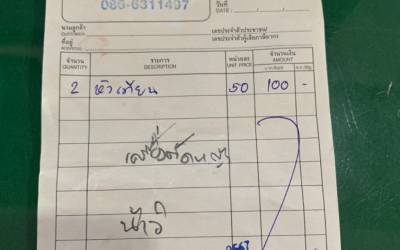 086-6311407
วันที่
DATE
นามลูกค้า
CUSTOMER
เลขประจำตัวประชาชน/
ที่อยู่
ADDRESS
เลขประจำตัวผู้เสียภาษีอากร
จำนวน รายการ หน่วยละ จำนวนเงิน
QUANTITY DESCRIPTION UNIT PRICE AMOUNT
2 หัวเทียน 50 100 -
เครื่องตัดหญ้า